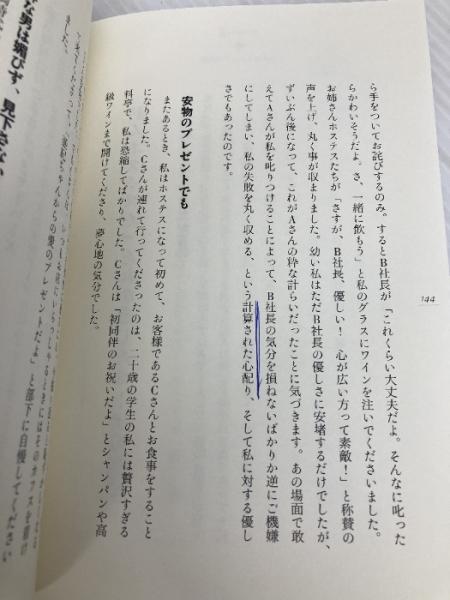 144
ら手をついてお詫びするのみ。するとB社長が「これくらい大丈夫だよ。そんなに叱った
らかわいそうだよ。さ、一緒に飲もう」と私のグラスにワインを注いでくださいました。
お姉さんホステスたちが「さすが、B社長、優しい！　心が広い方って素敵！」と称賛の
声を上げ、丸く事が収まりました。幼い私はただB社長の優しさに安堵するだけでしたが、
ずいぶん後になって、これがAさんの粋な計らいだったことに気づきます。あの場面で敢
えてAさんが私を叱りつけることによって、B社長の気分を損ねないばかりか逆にご機嫌
にしてしまい、私の失敗を丸く収める、という計算された心配り、そして私に対する優し
さでもあったのです。
安物のプレゼントでも
またあるとき、私はホステスになって初めて、お客様であるCさんとお食事をすること
になりました。Cさんが連れて行ってくださったのは、二十歳の学生の私には贅沢すぎる
料亭で、私は恐縮してばかりでした。Cさんは「初同伴のお祝いだよ」とシャンパンや高
級ワインまで開けてくださり、夢心地の気分でした。
な男は媚びず、見下さない
ました。
ちゃんからの愛のプレゼントだよ」と部下に自慢してください